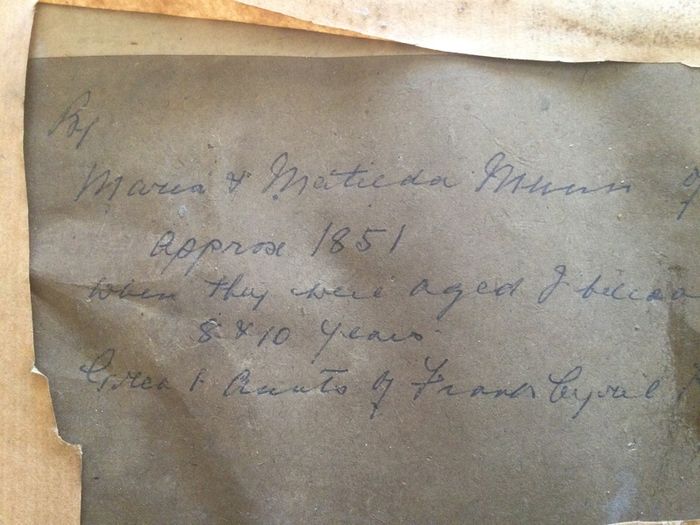 By
Maria & Matilda Munn
Approx 1851
When they were aged I believe
8 & 10 years
Great Aunts of Frank Cyril